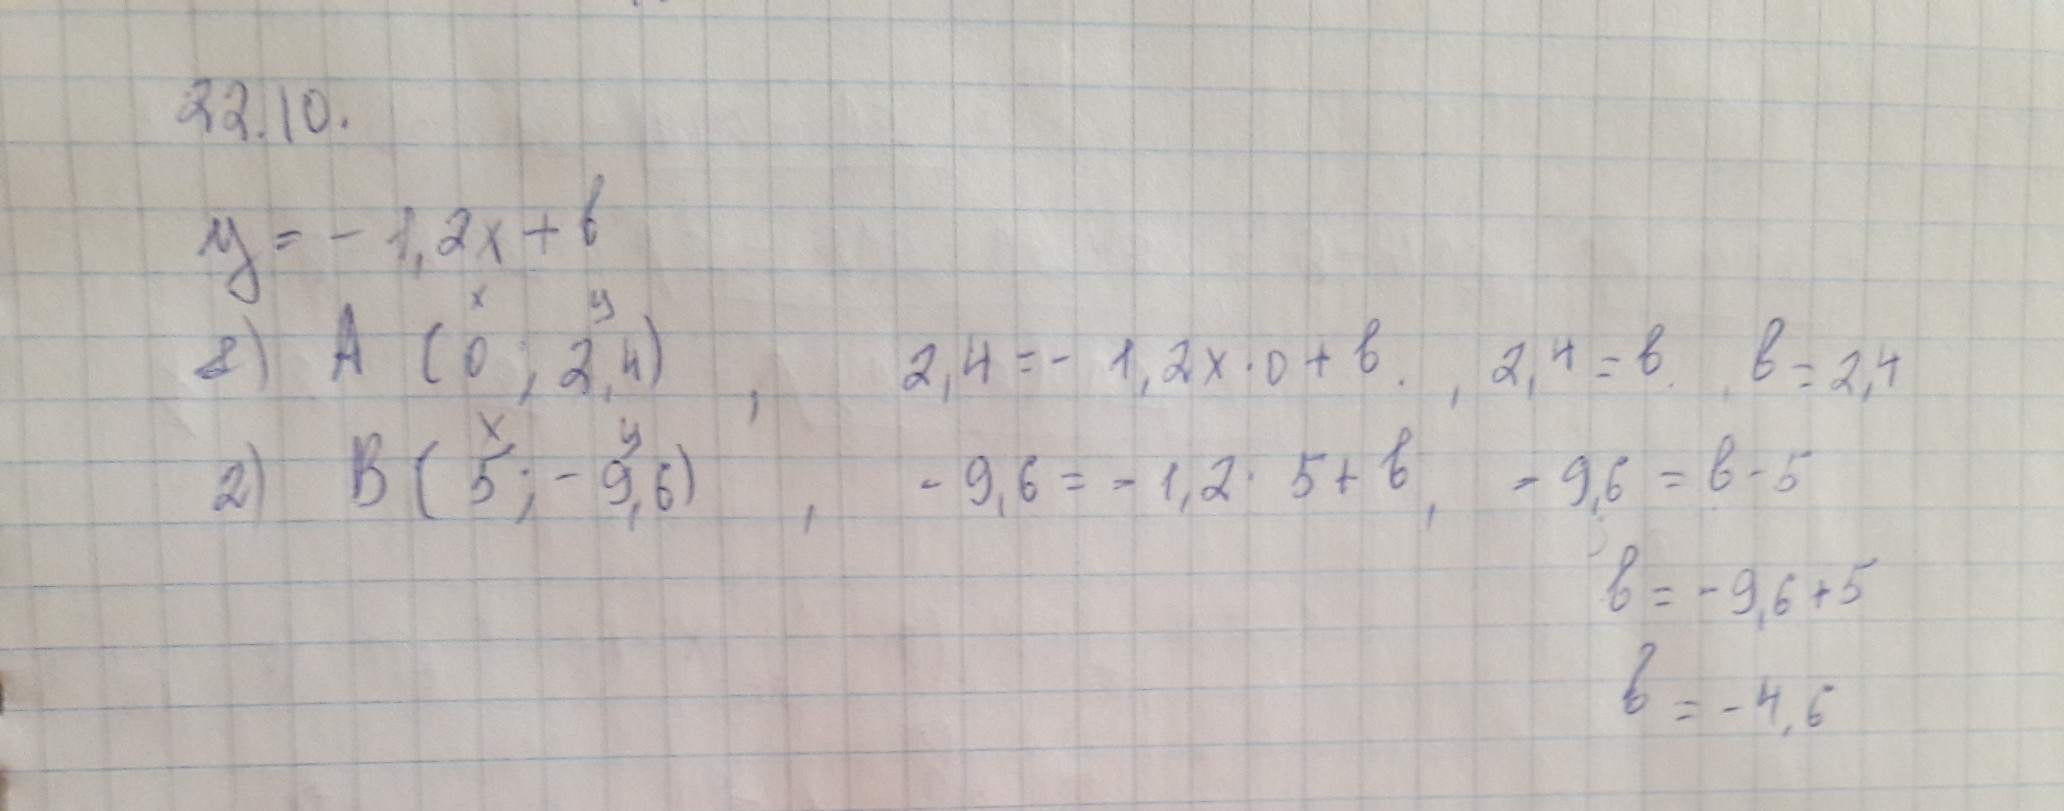 22.10.
y = - 1,2x + b
x y
1) A (0 ; 2,4) , 2,4 = - 1,2x · 0 + b. , 2,4 = b. , b = 2,4
x y
2) B ( 5 ; - 9,6) , - 9,6 = - 1,2 · 5 + b , - 9,6 = b - 5
b = - 9,6 + 5
b = - 4,6